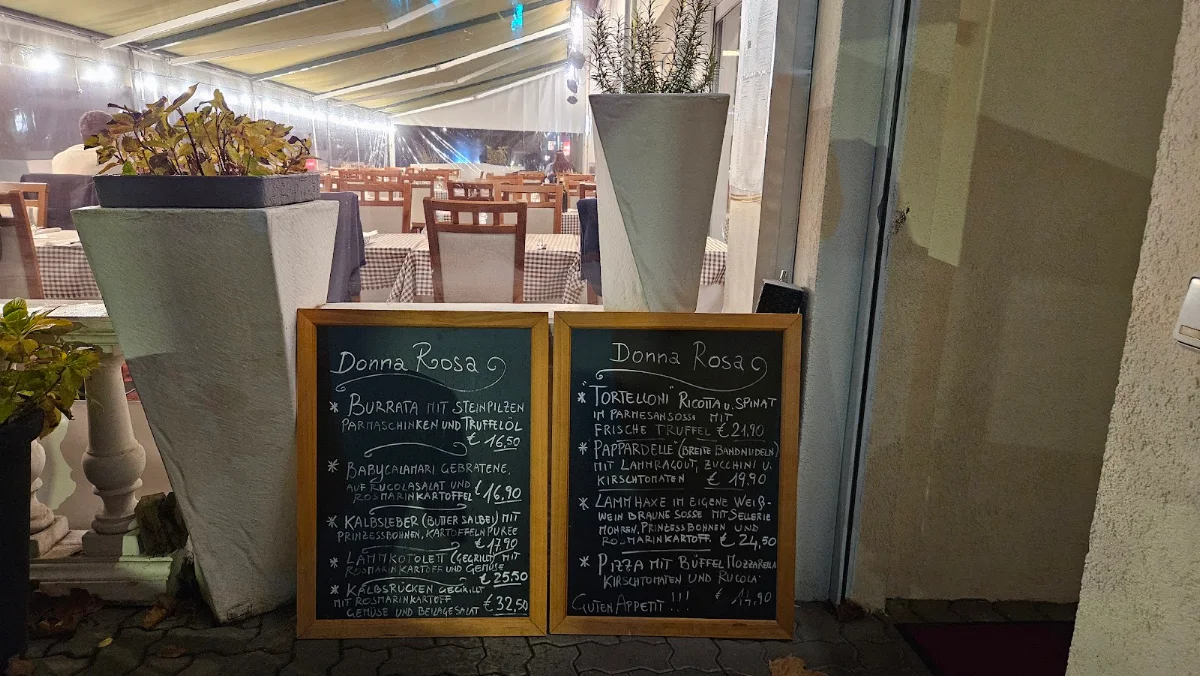 Donna Rosa
* BURRATA MIT STEINPILZEN
PARMASCHINKEN UND TRUFFELÖL
€ 16,50
* BABYCALAMARI GEBRATENE,
AUF RUCOLASALAT UND
ROSMARINKARTOFFEL € 16,90
* KALBSLEBER (BUTTER SALBEI) MIT
PRINZESSBOHNEN, KARTOFFELN PÜREE
€ 17,90
* LAMMKOTOLETT (GEGRILLT) MIT
ROSMARINKARTOFF UND GEMÜSE
€ 25,50
* KALBSRÜCKEN GEGRILLT
MIT ROSMARINKARTOFF
GEMÜSE UND BEILAGESALAT € 32,50
Donna Rosa
* "TORTELLONI" RICOTTA U. SPINAT
IM PARMESANSOSSE MIT
FRISCHE TRUFFEL € 21,90
* PAPPARDELLE" (BREITE BANDNUDELN)
MIT LAMMRAGOUT, ZUCCHINI U.
KIRSCHTOMATEN € 19,90
* LAMMHAXE IM EIGENE WEIß-
WEIN BRAUNE SOSSE MIT SELLERIE
MÖHREN, PRINZESSBOHNEN UND
ROSMARINKARTOFF. € 24,50
* PIZZA MIT BÜFFEL MOZZARELLA
KIRSCHTOMATEN UND RUCOLA
€ 14,90
GUTEN APPETIT !!!